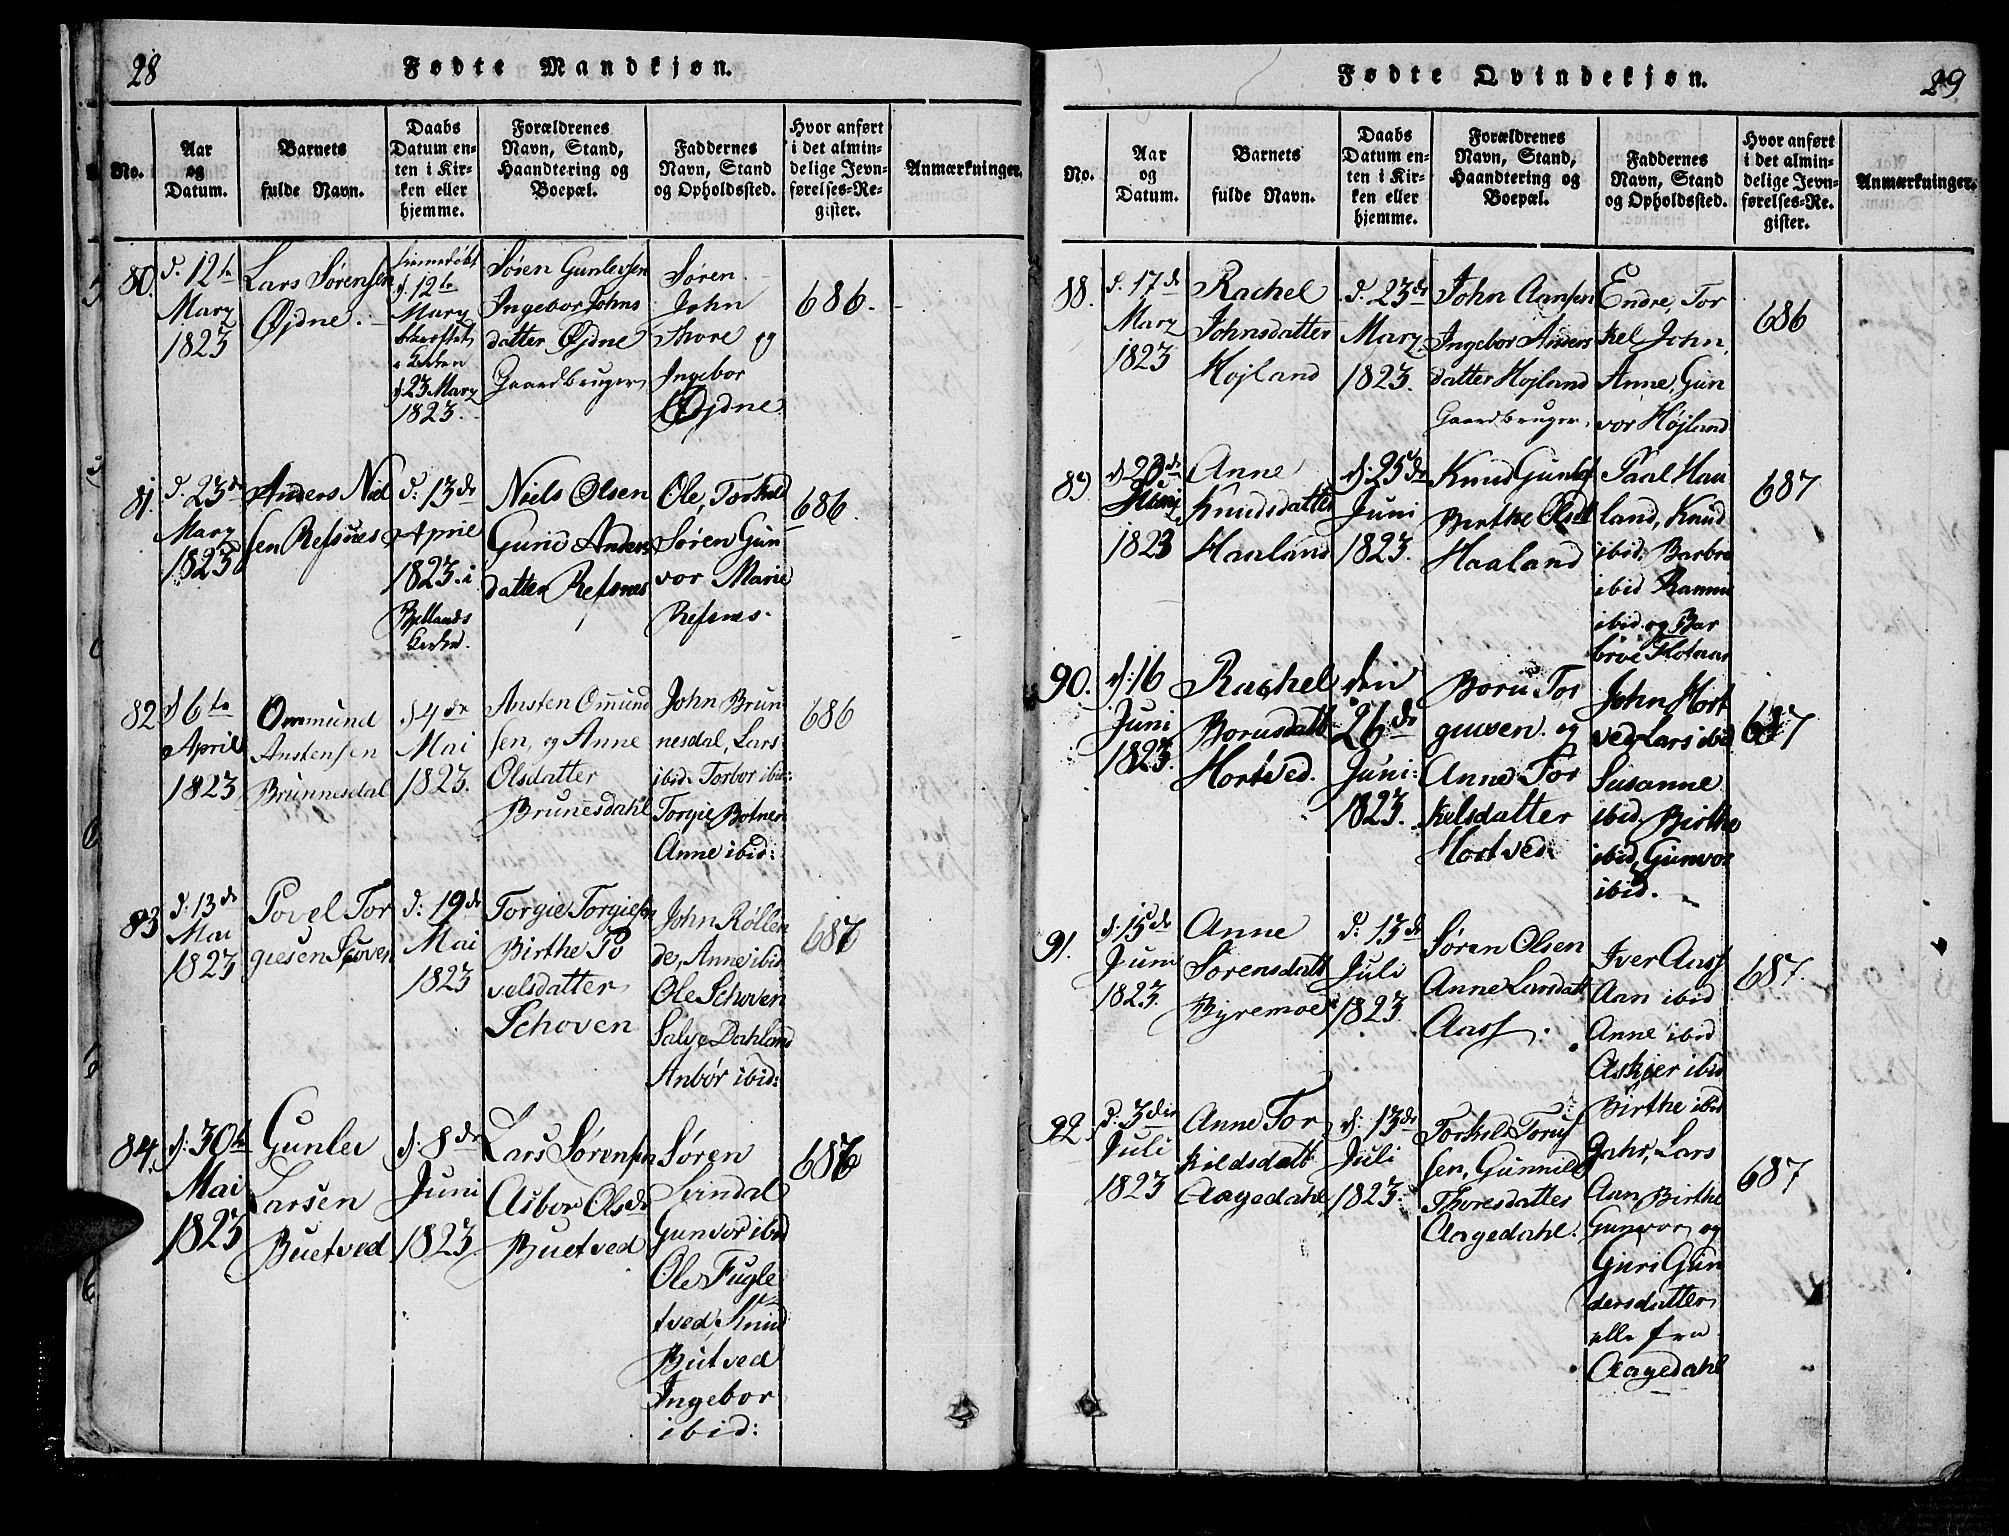 28
Fødte Mandkjøn.
No.
Aar
og
Datum.
Barnets
fulde Navn.
Daabs
Datum en-
ten i Kir-
ken eller
hjemme.
Forældrenes
Navn, Stand,
Haandtering og
Boepæl.
Faddernes
Navn, Stand
og Opholdssted.
Hvor anført
i det almin-
delige Jevn-
førelses-Re-
gister.
Anmærkninger.
80.
d. 12te
Marz
1823
Lars Sørensen
Øjdne.
hjemmedøbt
d. 12te
Marz
i Kirken
d 23 Marz
1823.
Søren Gunlevsen
Ingebor Johns
datter Øjdne
Gaardbruger
Søren
John
Thore og
Ingebor
Øjdne
686.
81.
d. 23de
Marz
1823
Anders Niel
sen Refsnes
d: 13de
April
1823. i
Bjellands
Kirke.
Niels Olsen
Gurie Anders
datter Refsnes
Ole, Torkild
Søren Gun
vor Marie
Refsnes.
686.
82
d 6te
April
1823
Ommund
Anstensen
Brunnesdal
d 4de
Mai
1823.
Ansten Ommund
sen, og Anne
Olsdatter
Brunesdahl
John Brun
nesdal, Lars
ibid. Torbor ibid:
Torgie Botner
Anne ibid:
686
83
d: 13de
Mai
1823
Povel Tor
giesen Schoven
d: 19de
Mai
1823
Torgie Torgiesen
Birthe Po
velsdatter
Schoven
John Røllen
de, Anne ibid
Ole Schoven
Salve Dahland
Anbør ibid:
687
84.
d: 30te
Mai
1823
Gunlev
Larsen
Buetved
d: 8de
Juni
1823
Lars Sørensen
Asbor Olsdr
Buetved
Søren
Svindal
Gunvor ibid
Ole Fugle
tved, Knud
Butved
Ingebor
ibid:
687
29
Fødte Qvindekjøn.
No.
Aar
og
Datum.
Barnets
fulde Navn.
Daabs
Datum en-
ten i Kir-
ken eller
hjemme.
Forældrenes
Navn, Stand,
Haandtering og
Boepæl.
Faddernes
Navn, Stand
og Opholdssted.
Hvor anført
i det almin-
delige Jevn-
førelses-Re-
gister.
Anmærkninger.
88.
d. 17de
Marz
1823
Rachel
Johnsdatter
Højland
d. 23de
Marz.
1823.
John Aansen
Ingebor Anders
datter Højland
Gaardbruger.
Endre, Tor
kel John,
Anne, Gun
vor Højland
686
89
d 23de
1823
Anne
Knudsdatter
Haaland
d: 25de
Juni
1823.
Knud Gunlefs
Birthe Olsdt
Haaland
Paal Haa
land, Knud
ibid, Barbro
ibid
ibid. og Bar
broe Flotaas
687
90.
d: 16
Juni
1823.
Rachel
Borusdatt
Hortved.
den
26de
Juni:
1823.
Boru Tor
giusen. og
Anne Tor
kelsdatter
Hortved.
John Hort
ved Lars ibid
Susanne
ibid, Birthe
ibid, Gunvor
ibid.
687
91.
d. 15de
Juni
1823.
Anne
Sørensdatt
Byremoe
d: 13de
Juli
1823.
Søren Olsen
Anne Larsdatt
Aas.
Iver Aas
Aan ibid
Anne ibid
Askier ibid
Birthe ibid
687.
92.
d. 3die
Juli
1823
Anne Tor
kildsdatt
Aagedahl
d: 13de
Juli
1823.
Torkel Torus
sen, Gunnild
Thoresdatter
Aagedahl.
Jahr, Lars
Aan Birthe
Gunvor og
Guri Gun
dersdatter
alle fra
Aagedahl
687